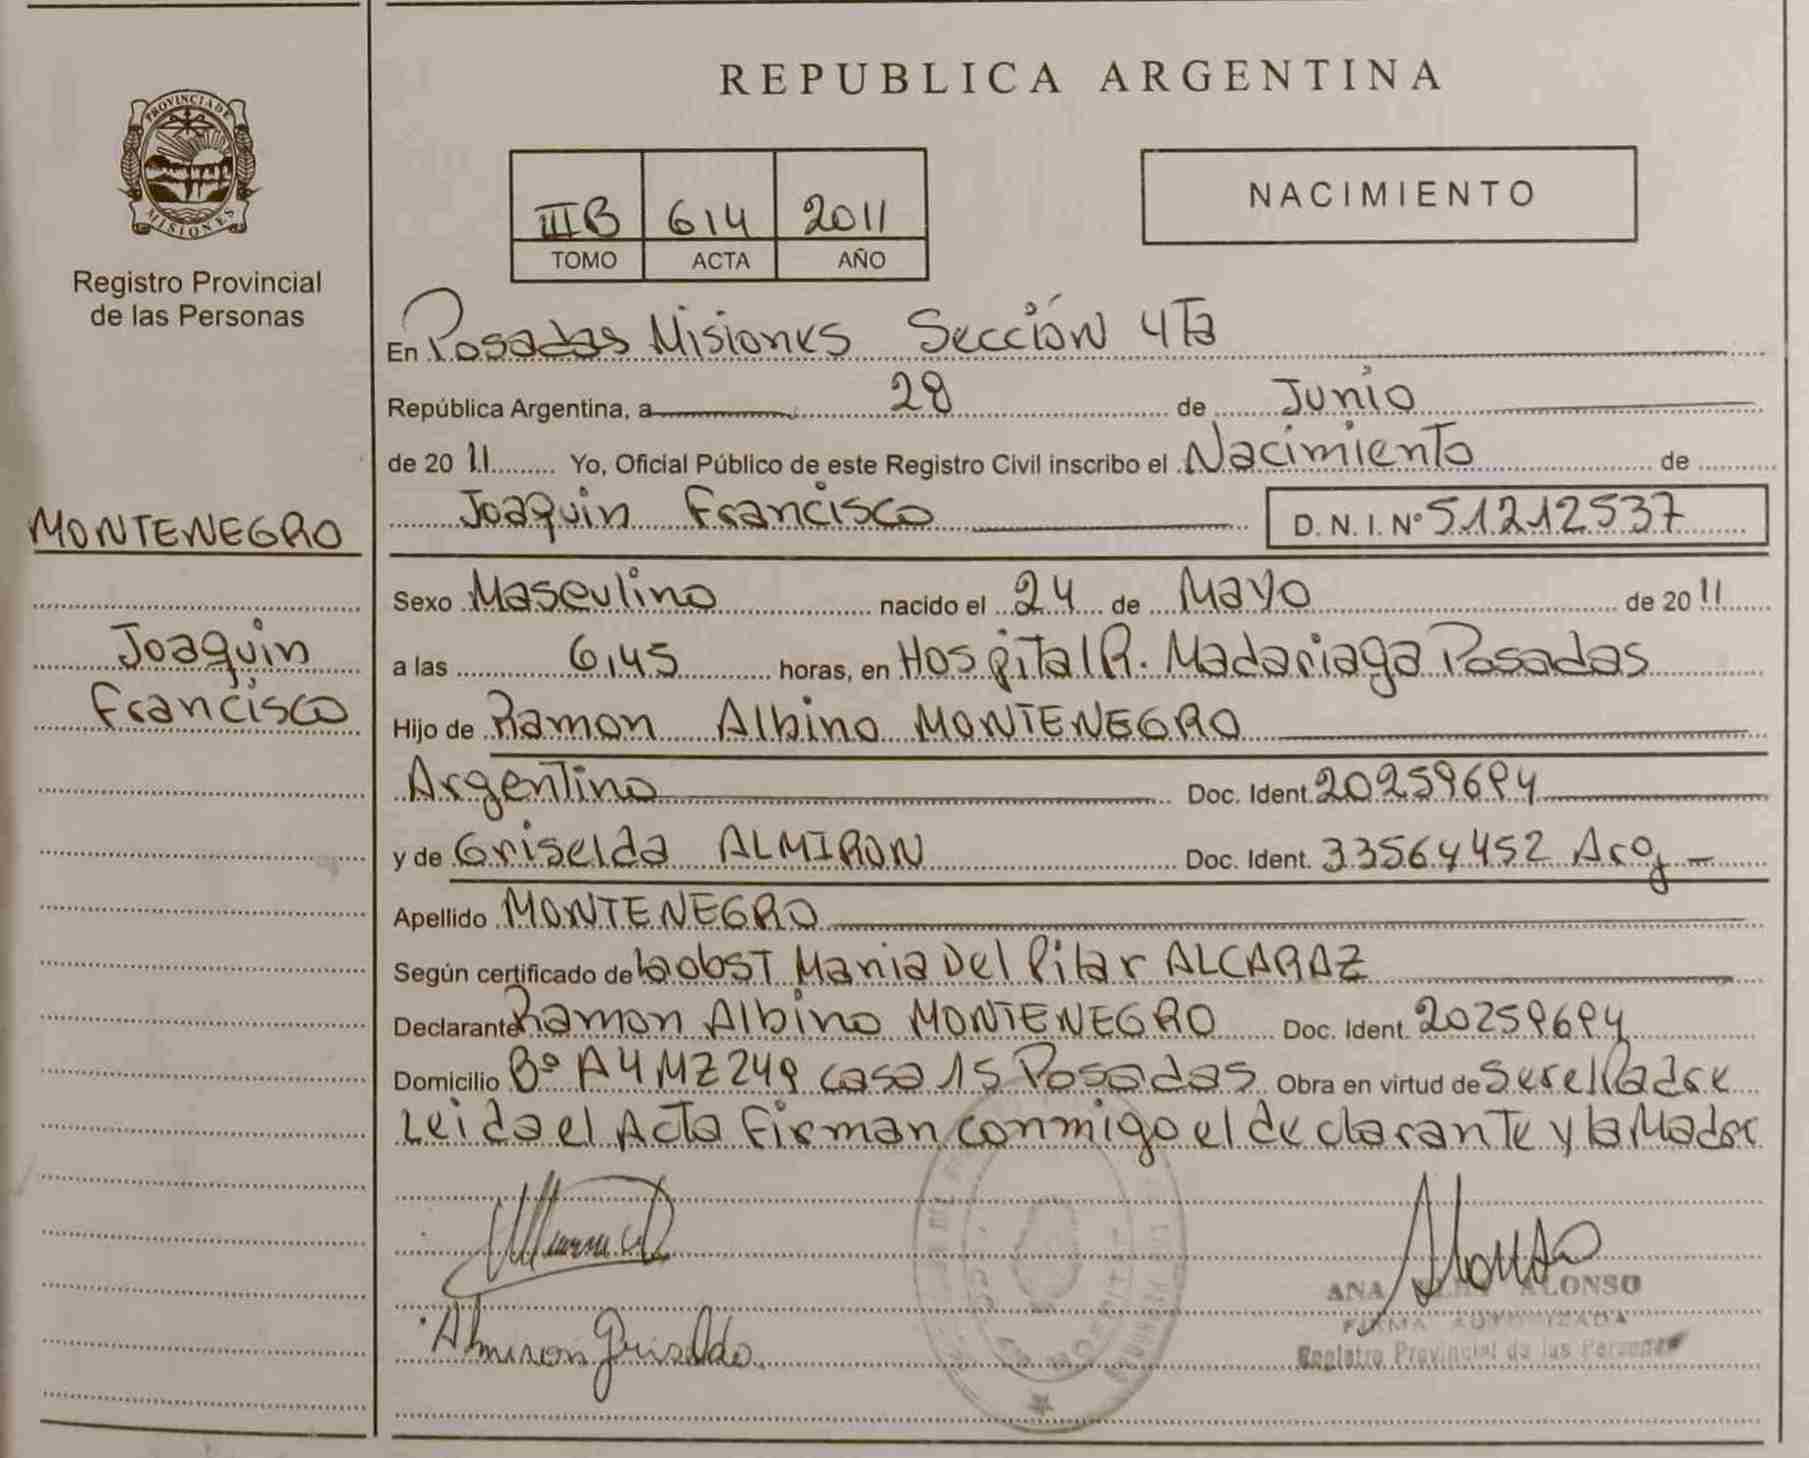 PROVINCIA DE
MISIONES
Registro Provincial
de las Personas
MONTENEGRO
Joaquin
Francisco
REPUBLICA ARGENTINA
IIIB 614 2011
TOMO ACTA AÑO
NACIMIENTO
En Posadas Misiones Sección 4ta
República Argentina, a 28 de Junio
de 2011 Yo, Oficial Público de este Registro Civil inscribo el Nacimiento de
Joaquin Francisco D. N. I. Nº 51212537
Sexo Masculino nacido el 24 de Mayo de 2011
a las 6,45 horas, en Hospital R. Madariaga Posadas
Hijo de Ramon Albino MONTENEGRO
Argentino Doc. Ident. 20259694
y de Griselda ALMIRON Doc. Ident. 33564452 Arg
Apellido MONTENEGRO
Según certificado de la obst Maria Del Pilar ALCARAZ
Declarante Ramon Albino MONTENEGRO Doc. Ident. 20259694
Domicilio Bº A4 MZ 249 casa 15 Posadas Obra en virtud de Ser el Padre
Leida el Acta Firman conmigo el declarante y la Madre
Alonso
ANA ALONSO
FIRMA AUTORIZADA
Registro Provincial de las Personas
Almiron Griselda